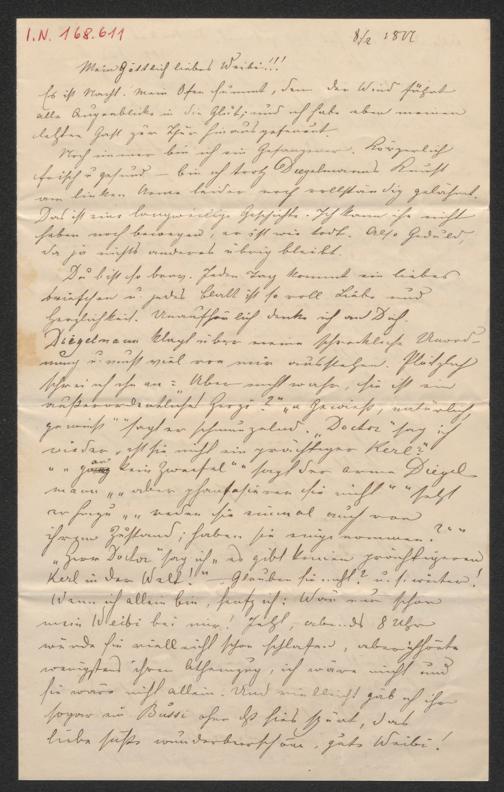 I.N. 168.611
8/2 18
Mein göttlich liebes Weibi!!!
Es ist Nacht. Mein Ofen summt, denn der Wind fährt
alle Augenblicke in die Glut; und ich habe eben meinen
letzten Gast zur Thür hinaus
Noch immer bin ich ein Gefangener. Körperlich
frisch u gesund – bin ich trotz Diegelmanns Kunst
am linken Arme leider noch vollständig gelähmt.
Das ist eine langweilige Geschichte. Ich kann ihn nicht
heben noch bewegen, er ist wie todt. Also Geduld
da ja nichts anderes übrig bleibt.
Du bist so brav. Jeden Tag kommt ein liebes
Briefchen u jedes Blatt ist so voll Liebe und
Herzlichkeit. Unaufhörlich denke ich an Dich.
Diegelmann klagt über meine schreckliche Unord-
nung u. muß viel von mir ausstehen. Plötzlich
schrei ich ihn an: „Aber nicht wahr, sie ist ein
außerordentliches ?" „„Gewiß, natürlich,
gewiß"" sagt er schmunzelnd. „Doctor" sag ich
wieder, „ist sie nicht ein prächtiger Kerl?"
„„ kein Zweifel"" sagt der arme Diegel
mann „„aber phantasieren sie nicht"" setzt
er hinzu „„reden sie einmal auch von
ihrem Zustand; haben sie eingenommen?""
„Herr Doctor" sag ich „es gibt keinen prächtigeren
Kerl in der Welt!" – Glauben sie nicht? u. s. weiter!
Wenn ich allein bin, seufz ich: Wär nur schon
mein Weibi bei mir! Jetzt, abends 8 Uhr
würde sie vielleicht schon schlafen, aber ich hörte
wenigstens ihren Athemzug, ich wäre nicht und
sie wäre nicht allein. Und vielleicht gäb ich ihr
sogar ein Bussi ohne daß sies spürt, das
liebe süße wunderbarschöne, gute Weibi!